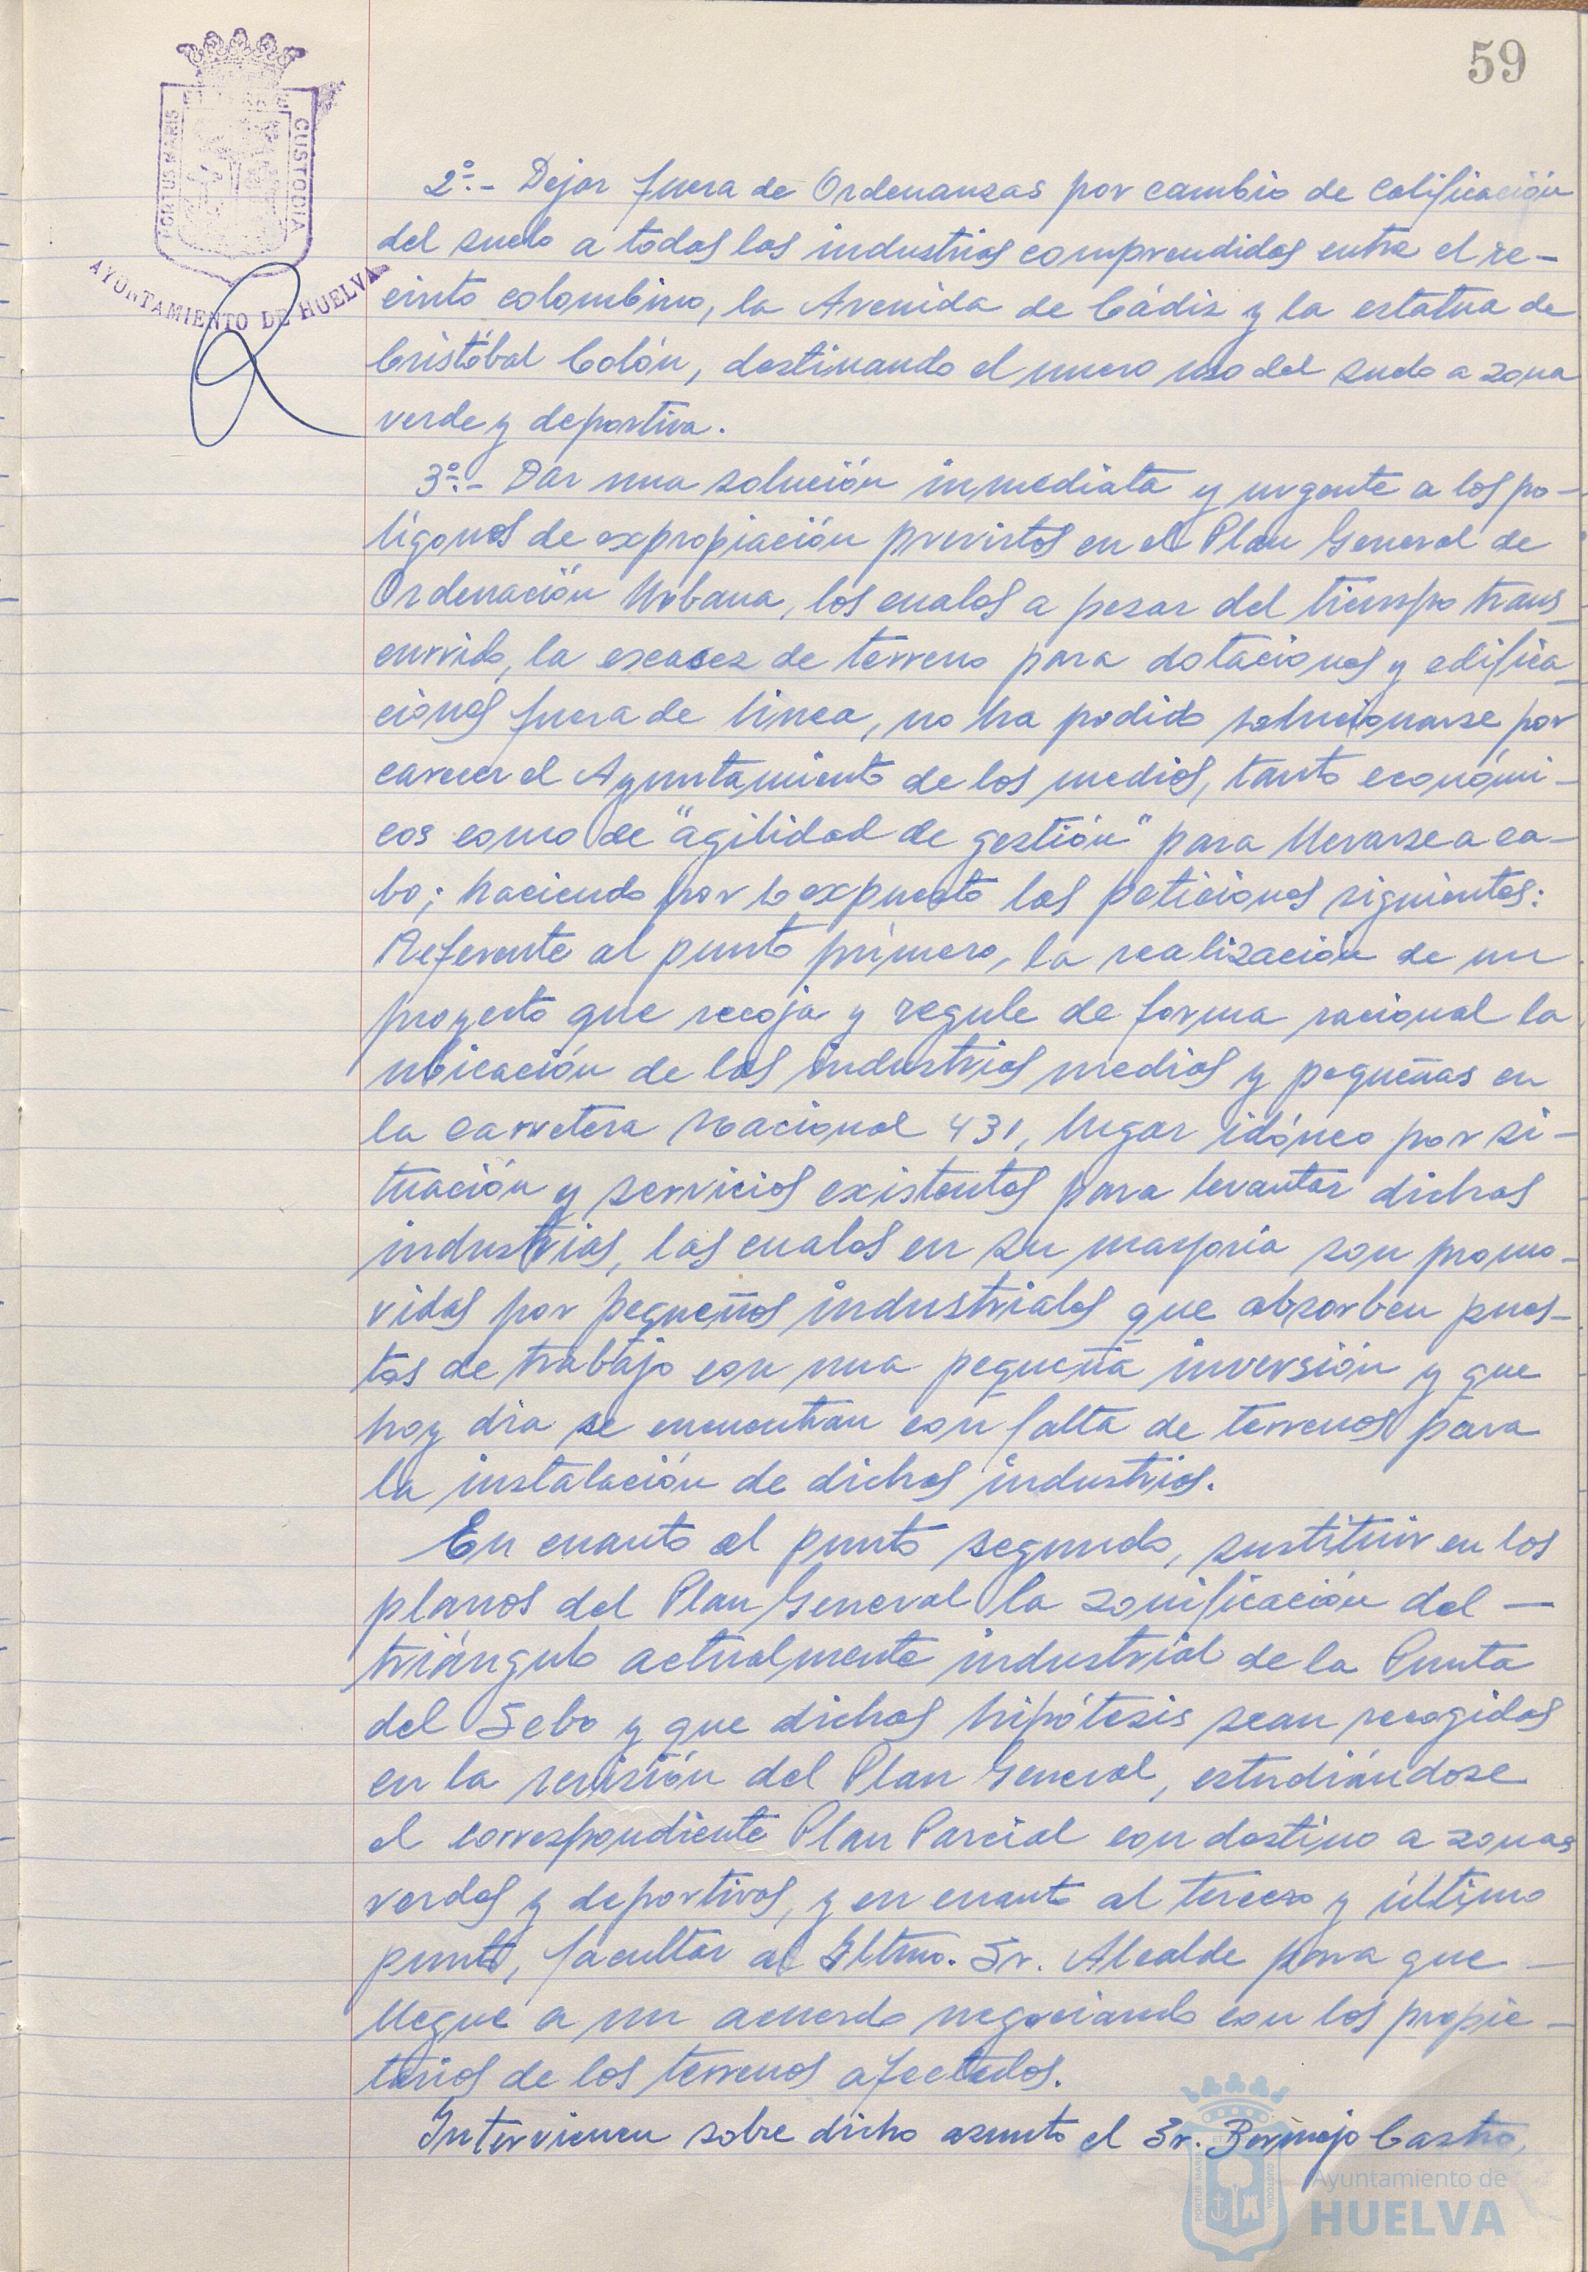 59
PORTUS MARIS
CUSTODIA
AYUNTAMIENTO DE HUELVA
2º.- Dejar fuera de Ordenanzas por cambio de calificación
del suelo a todas las industrias comprendidas entre el re-
cinto colombino, la Avenida de Cádiz y la estatua de
Cristóbal Colón, destinando el nuevo uso del suelo a zona
verde y deportiva.
3º.- Dar una solución inmediata y urgente a los po-
lígonos de expropiación previstos en el Plan General de
Ordenación Urbana, los cuales a pesar del tiempo trans_
currido, la escasez de terreno para dotaciones y edifica_
ciones fuera de línea, no ha podido solucionarse por
carecer el Ayuntamiento de los medios, tanto económi-
cos como de "agilidad de gestión" para llevarse a ca-
bo; haciendo por lo expuesto las peticiones siguientes:
Referente al punto primero, la realización de un
proyecto que recoja y regule de forma racional la
ubicación de las industrias medias y pequeñas en
la carretera Nacional 431, lugar idóneo por si-
tuación y servicios existentes para levantar dichas
industrias, las cuales en su mayoría son promo-
vidas por pequeños industriales que absorben pues-
tos de trabajo con una pequeña inversión y que
hoy dia se encuentran con falta de terrenos para
la instalación de dichas industrias.
En cuanto al punto segundo, sustituir en los
planos del Plan General la zonificación del —
triángulo actualmente industrial de la Punta
del Sebo y que dichas hipótesis sean recogidas
en la revisión del Plan General, estudiándose
el correspondiente Plan Parcial con destino a zonas
verdes y deportivas, y en cuanto al tercero y último
punto, facultar al Iltmo. Sr. Alcalde para que —
llegue a un acuerdo negociando con los propie-
tarios de los terrenos afectados.
Intervienen sobre dicho asunto el Sr. Bermejo Castro,
PORTUS MARIS
CUSTODIA
Ayuntamiento de
HUELVA